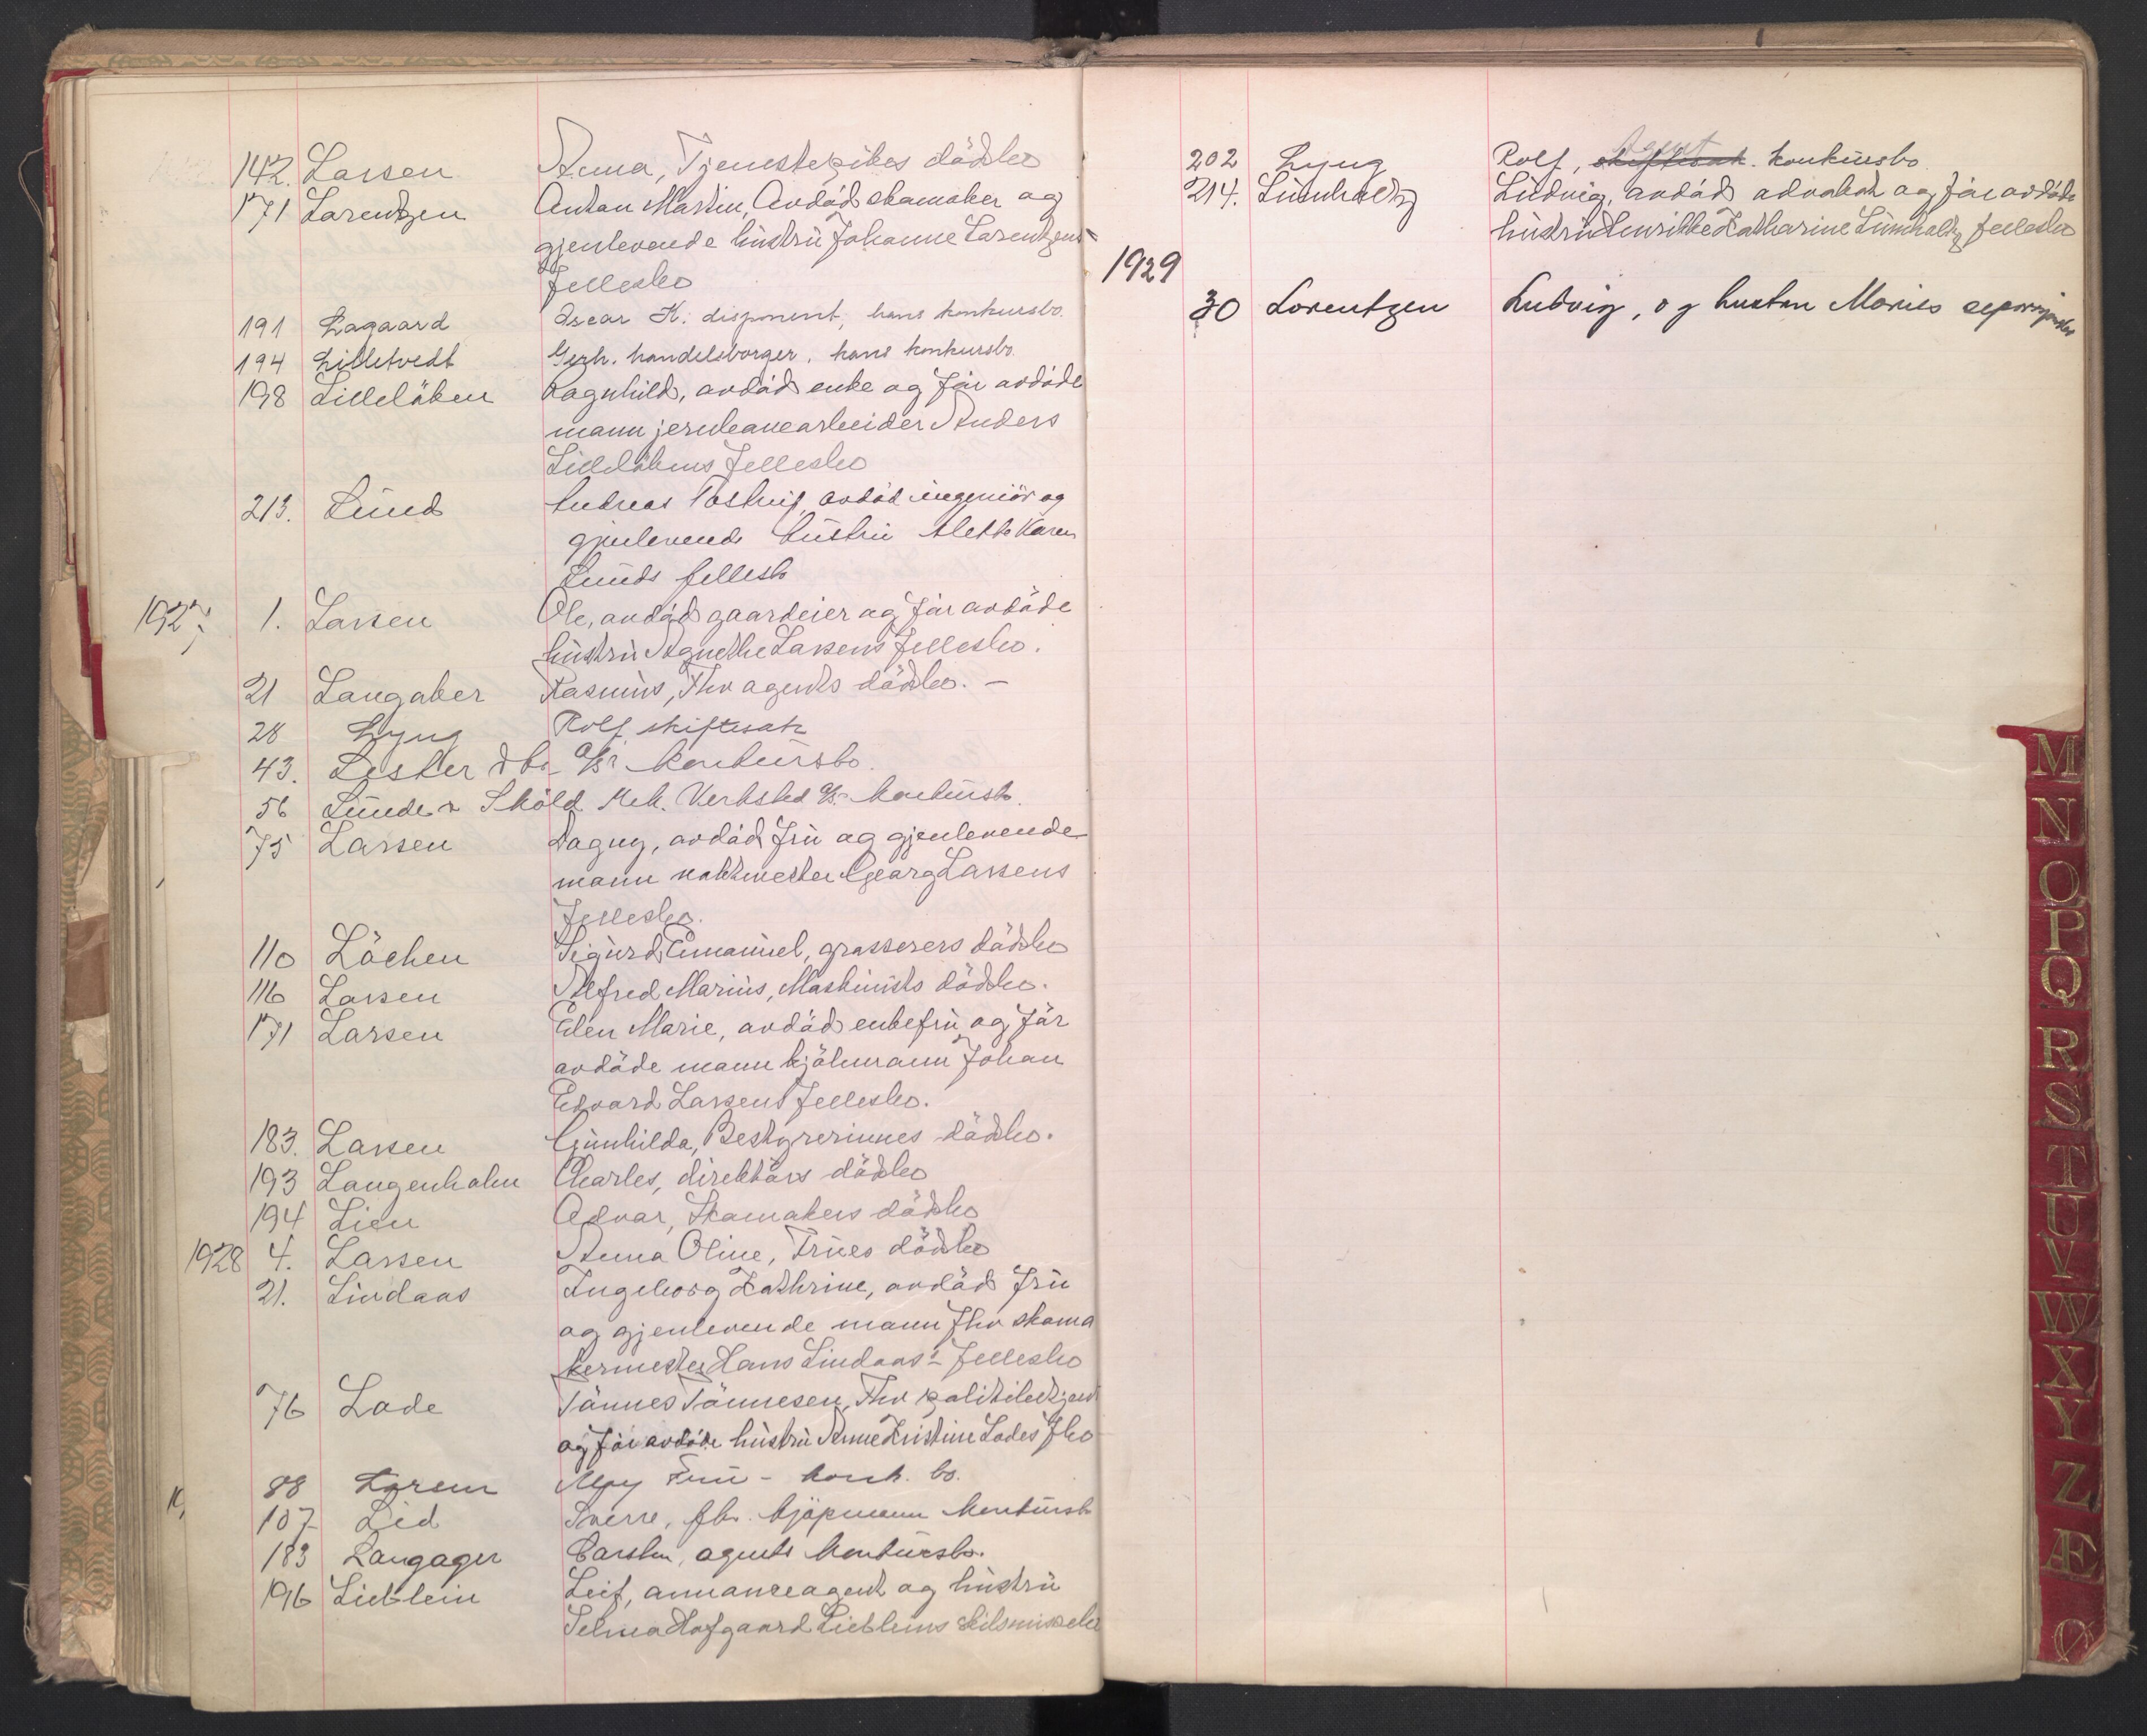 142. Larsen Anna, Tjenestepikes dödsbo
171 Larentzen Anton Martin, Avdöd skomaker og
gjenlevende hustru Johanne Larentzens
Fellesbo
191 Lagaard Oscar K. disponent, hans konkursbo.
194 Lilletvedt Gerh. handelsborger, hans konkursbo.
198 Lilleløken Ragnhild, avdöd enke og før avdöde
mann jernbanearbeider Anders
Lilleløkens Fellesbo
213. Lund Andreas avdöd ingeniör og
gjenlevende hustru Alette Karen
Lunds fellesb
1927. 1. Larsen Ole, avdöd gaardeier og før avdöde
hustru Agnethe Larsens Fellesbo.
21 Langaker Rasmus, Fhv agents dödsbo. –
28 Lyng Rolf skiftesak
43. Lesker & Co. A/S's konkursbo.
56 Lunde & Sköld Mek. Verksted A/S – konkursb.
75 Larsen Dagny, avdöd fru og gjenlevende
mann vaktmester Georg Larsens
Fellesbo.
110 Löchen Sigurd Emanuel, grosserers dödsbo
116 Larsen Alfred Marius, Maskinists dödsbo.
171 Larsen Elen Marie, avdöd enkefru og før
avdöde mann kjölmann Johan
Edvard Larsens Fellesbo.
183. Larsen Gunhilda, Bestyrerinnes dödsbo.
193 Langenholm Charles, direktörs dödsbo
194 Lien Advar, Skomakers dödsbo
1928 4. Larsen Anna Oline, Frues dödsbo
21. Lindaas Ingeborg Kathrine, avdöd fru
og gjenlevende mann fhv skoma
kermester Hans Lindaas's Fellesbo
76 Lode Tönnes Tönnesen, Fhv politibetjent
og før avdöde hustru Anne Kristine Lodes Fbo
88 Lorem May Fru – konk. bo.
107 Lid Sverre, fhv. kjöpmann konkursb
183 Langager Carsten, agents konkursbo.
196 Lieblein Leif, annonceagent og hustru
Selma Hofgaard Liebleins skilsmissebo
Agent
202 Lyng Rolf, skiftesak. konkursbo
214. Lumholtz Ludvig, avdöd advokat og før avdöde
hustru Henrikke Katharine Lumholtz fellesbo
1929
30 Lorentzen Ludvig, og hustru Maries
M
N
O
P
Q
R
S
T
U
V
W
X
Y
Z
Æ
Ø